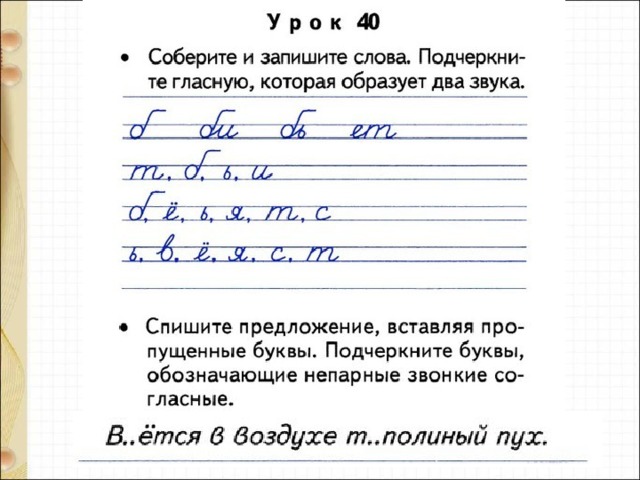 Урок 40
• Соберите и запишите слова. Подчеркни-
те гласную, которая образует два звука.
б би бь ет
т, б, ь, и
б, ё, ь, я, т, с
ь, в, ё, я, с, т
• Спишите предложение, вставляя про-
пущенные буквы. Подчеркните буквы,
обозначающие непарные звонкие со-
гласные.
В..ётся в воздухе т..полиный пух.